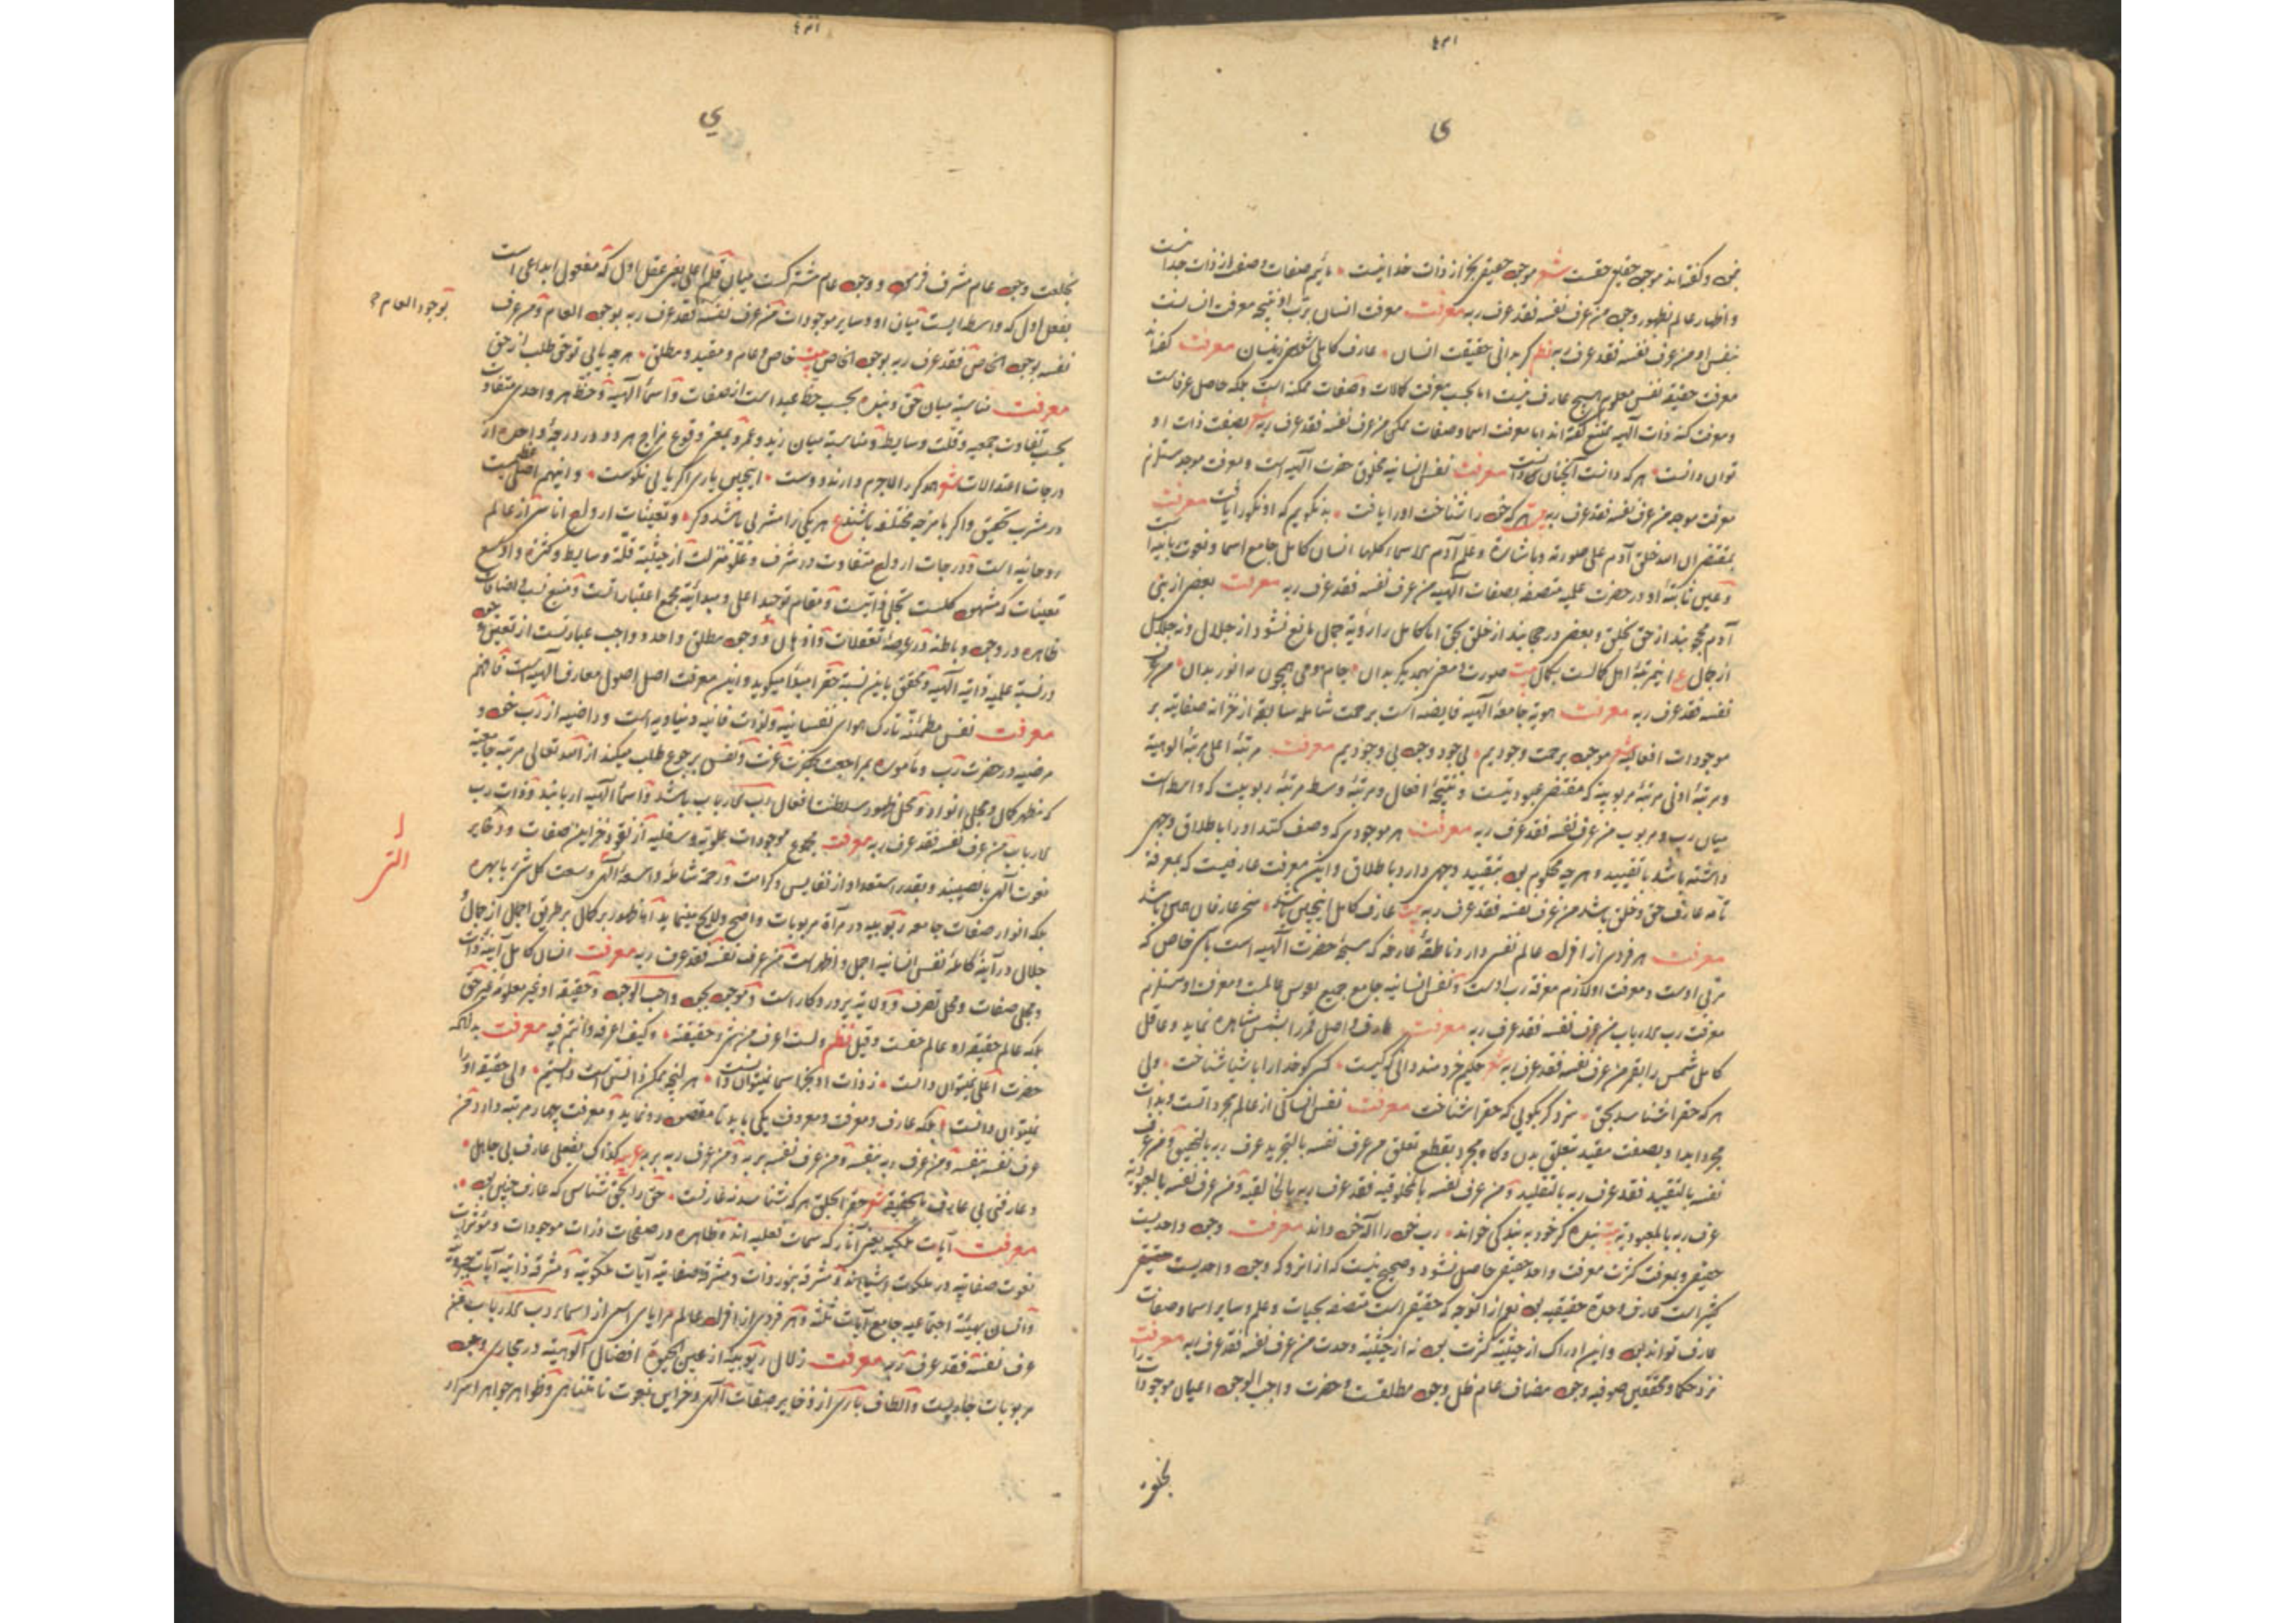 ی
و گفته‌اند موجود حقیقی حقست شعر موجود حقیقی بجز از ذات خدا نیست مائیم صفات و صفت از ذات جدا نیست
و اظهار عالم بظهور وجود من عرف نفسه فقد عرف ربه معرفت معرفت انسان برب او نتیجه معرفت انسانست
بنفس او من عرف نفسه فقد عرف ربه نظم کر بدانی حقیقت انسان عارف کاملی شوی زینسان معرفت گفته‌اند
معرفت حقیقة نفس معلوم هیچ عارف نیست اما بحسب معرفت کمالات و صفات ممکنه است بلکه حاصل عرفاست
و معرفت کنه ذات الهیه ممتنع گفته‌اند اما معرفت اسما و صفات ممکن من عرف نفسه فقد عرف ربه شعر بصفت ذات او
توان دانست هر که دانست آنچنان دانست معرفت نفس انسانیه مخلوق حضرت الهیه است و معرفت موجد مستلزم
معرفت موجد من عرف نفسه فقد عرف ربه بیت هر که خود را شناخت او را یافت بد نگویم که او نکو را یافت معرفت
بمقتضی ان الله خلق آدم علی صورته و باشارة و علم آدم الاسماء کلها انسان کامل جامع اسما و نعوت ربانیه است
و عین ثابتهٔ او در حضرت علمیه متصفه بصفات الهیه من عرف نفسه فقد عرف ربه معرفت بعضی از بنی
آدم محجوبند از حق بخلق و بعضی در حجابند از خلق بحق اما کامل را رؤیة جمال مانع نشود از جلال و نه جلال
از جمال ع اینمرتبهٔ اهل کمالست بکمال بیت صورت و معنی بهمدیگر بدان جام و می همچون مه انور بدان من عرف
نفسه فقد عرف ربه معرفت هویة جامعهٔ الهیه فایضه است برحمت شامله سابقه از خزانه صفاتیه بر
موجودات افعالیه شعر موجود برحمت وجودیم بی جود وجود بی وجودیم معرفت مرتبهٔ اعلی مرتبهٔ الوهیة
و مرتبهٔ ادنی مرتبهٔ مربوبیة که مقتضی عبودیتست و نتیجهٔ افعال و مرتبهٔ وسط مرتبهٔ ربوبیت که واسطه است
میان رب و مربوب من عرف نفسه فقد عرف ربه معرفت هر موجودی که وصف کنند او را باطلاق وجهی
داشته باشد بتقیید و هر چه محکوم بود بتقیید وجهی دارد باطلاق و این معرفت عارفیست که بمعرفة
تامه عارف حق و خلق باشد من عرف نفسه فقد عرف ربه بیت عارف کامل اینچنین باشد سخن عارفان همین باشد
معرفت هر فردی از افراد عالم نفسی دارد ناطقهٔ عارفه که مسبحهٔ حضرت الهیه است باسم خاص که
مربی اوست و معرفت او لازم معرفة رب اوست و نفس انسانیه جامع جمیع نفوس عالمست و معرفت او مستلزم
معرفت رب الارباب من عرف نفسه فقد عرف ربه معرفت عارف واصل قمر را بشمس مشاهده نماید و عاقل
کامل شمس را بقمر من عرف نفسه فقد عرف ربه شعر حکیم خردمند دانی که کیست کسی کو خدا را باشیا شناخت ولی
هر که حق را شناسد بحق سزد گر بگوئی که حق را شناخت معرفت نفس انسانی از عالم مجرداتست و بذات
مجرد ابدا و بصفت مقید بتعلق بدن و گاه مجرد بقطع تعلق من عرف نفسه بالتجرید عرف ربه بالتحقیق و من عرف
نفسه بالتقیید فقد عرف ربه بالتقلید و من عرف نفسه بالمخلوقیه فقد عرف ربه بالخالقیه و من عرف نفسه بالعبودیه
عرف ربه بالمعبودیه بیت بنده گر خود به بندگی خواند رب خود را اله خود داند معرفت وجود واحدیست
حقیقی و بمعرفت کثرت معرفت واحد حقیقی حاصل نشود و صحیح نیست که از آنرو که وجود واحدیست حقیقی
کثیر است عارف وحدة حقیقیه بود نعم از آنوجه که حقیقی است متصفه بحیات و علم و سایر اسما و صفات
عارف تواند بود و این ادراک از حیثیة کثرت بود نه از حیثیة وحدت من عرف نفسه فقد عرف ربه معرفت
نزد حکما و محققین صوفیه وجود مضاف عام ظل وجود مطلقست و حضرت واجب الوجود اعیان موجودات را
بخلعة
ی
بخلعت وجود عام مشرف فرمود و وجود عام مشترکست میان قلم اعلی یعنی عقل اول که مفعول ابداعی است
بفعل اول که واسطه ایست میان او و سایر موجودات من عرف نفسه فقد عرف ربه بوجود العام و من عرف
بوجود العام
نفسه بوجود الخاص فقد عرف ربه بوجود الخاص بیت خاص و عام و مقید و مطلق هر چه یابی تو حق طلب از حق
معرفت مناسبه میان حق و بنده بحسب حظ عبد است از صفات و اسماء الهیه و حظ هر واحدی متفاوت
بحسب تفاوت جمعیه و قلت وسایط و مناسبة میان زید و عمرو بمعنی وقوع مزاج هر دو در درجهٔ واحده از
درجات اعتدالات شعر هر کرا لاجرم دارند دوست اینچنین یاری اگر یابی نکوست و اینهم اصلی عظیمست
در مشرب تحقیق و اگر بامزجه مختلفه باشند ع هر یکی را مشربی باشد دگر و تعینات ارواح اناسی از عالم
روحانیه است و درجات ارواح متفاوت در شرف و علو منزلت از حیثیة قلة وسایط و کثرة و اوسع
تعینات که مشهود کملست تجلی ذاتیست و مقام توحید اعلی و مبدائیة مجمع اعتباراتست و منبع نسب و اضافات
ظاهره در وجود و باطنه در عرصهٔ تعقلات و اذهان و وجود مطلق واحد و واجب عبارتست از تعین وجود
در نسبة علمیه ذاتیه الهیه و تحقق باین نسبة حق را مبدأ میگوید و این معرفت اصل اصول معارف الهیه است فافهم
معرفت نفس مطمئنه تارک هوای نفسانیه و لذات فانیه دنیاویه است و راضیه از رب خود و
مرضیه در حضرت رب و مأموره بمراجعت بحضرت عزت و نفس برجوع طلب میکند از الله تعالی مرتبه جامعیة
که مظهر کمال و مجلی انوار و محل ظهور سلطنة افعال رب الارباب باشد و اسماء الهیه اربابند و ذات رب
الارباب من عرف نفسه فقد عرف ربه معرفت مجموع موجودات علویه و سفلیه از نقود خزاین صفات و ذخایر
نعوت الهی بانصیبند و بقدر استعداد از نفایس و کرامت و رحمة شامله واسعهٔ الهی وسعت کل شیء بابهره
بلکه انوار صفات جامعه ربوبیه در مرآة مربوبات واضح و لایح مینماید اما ظهور بر کمال بر طریق اجمل از جمال و
جلال در آینهٔ کاملهٔ نفس انسانیه اجمل و اظهر است من عرف نفسه فقد عرف ربه معرفت انسان کامل آینهٔ ذات
و مجلی صفات و محل تصرف و ولایة پروردگار است و موجود بجود واجب الوجود و حقیقة او غیر معلومه غیر حق
بلکه عالم حقیقه او عالم حقست و قیل نظم و لست اعرف من شیء حقیقته و کیف اعرفه و انتم فیه معرفت بدانکه
حضرت اعلی نتوان دانست ز ذات او بجز اسما نتوان دانست هر آنچه ممکن دانستن است دانستیم ولی حقیقة او را
نتوان دانست بلکه عارف و معرفت و معروف یکی باید تا مقصود رو نماید و معرفت چهار مرتبه دارد من
عرف نفسه بنفسه و من عرف ربه بنفسه و من عرف نفسه بربه و من عرف ربه بربه
و عارفی بی عارف بالحقیقه شعر حق را بخلق هر که شناسد نه عارفست حق را بحق شناس که عارف چنین بود
معرفت آیات ملکیه یعنی آثار که سمات فعلیه اند ظاهره در صفحات ذرات موجودات و مؤثرات
نعوت صفاتیه در ملکوت اشیااند و مشرقه بنور ذات و مشرقه صفاتیه آیات ملکوتیة و مشرقه ذاتیه آیات جبروتیة
و انسانی بهیئة اجتماعیه جامع آیات ثلثه و هر فردی از افراد عالم مرایای اسمی از اسماء رب الارباب فمن
عرف نفسه فقد عرف ربه معرفت زلال ربوبیه از عین الحیوة افضال الوهیه در مجاری وجود
مربوبات جاریست و الطاف باری از ذخایر صفات الهی و خزاین نعوت نامتناهی و ظواهر جواهر اسرار